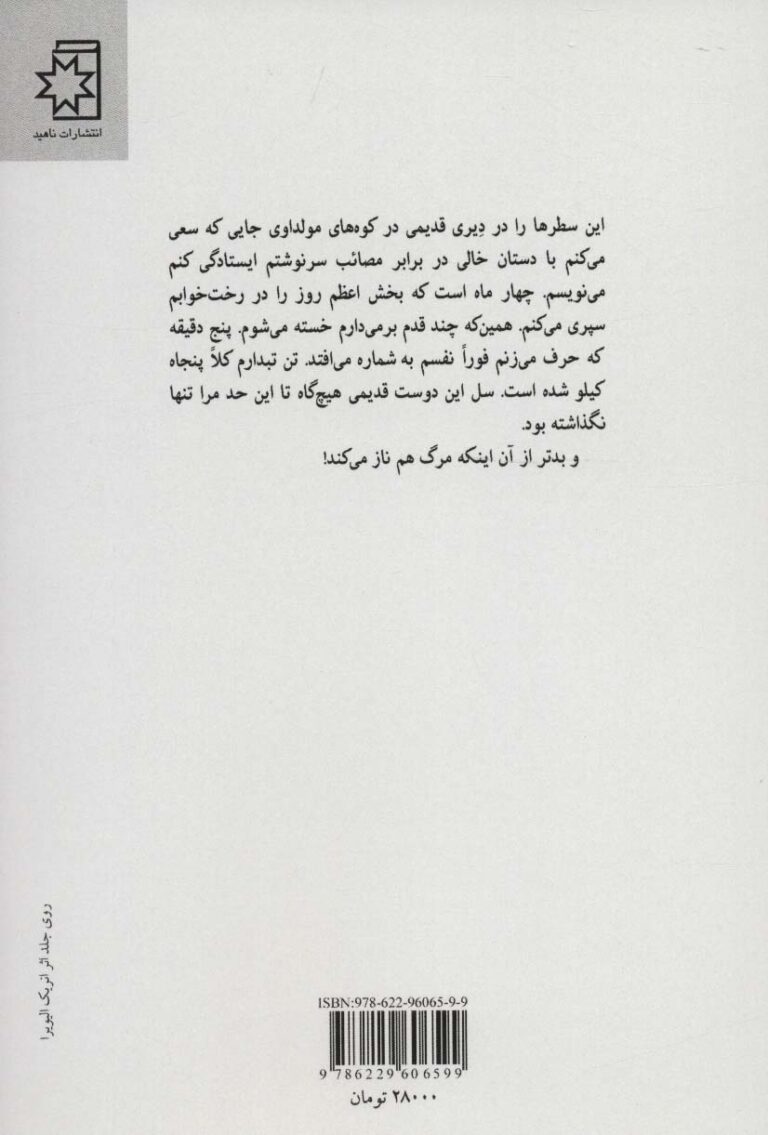 انتشارات ناهید
این سطرها را در دِیری قدیمی در کوه‌های مولداوی جایی که سعی
می‌کنم با دستان خالی در برابر مصائب سرنوشتم ایستادگی کنم
می‌نویسم. چهار ماه است که بخش اعظم روز را در رخت‌خوابم
سپری می‌کنم. همین‌که چند قدم برمی‌دارم خسته می‌شوم. پنج دقیقه
که حرف می‌زنم فوراً نفسم به شماره می‌افتد. تن تبدارم کلاً پنجاه
کیلو شده است. سل این دوست قدیمی هیچ‌گاه تا این حد مرا تنها
نگذاشته بود.
و بدتر از آن اینکه مرگ هم ناز می‌کند!
روی جلد اثر انریک الیویرا
ISBN:978-622-96065-9-9
9 786229 606599
۲۸۰۰۰ تومان